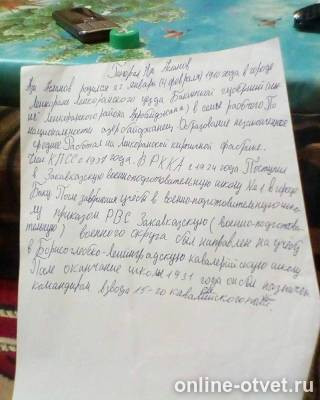 Генерал Ази Асланов
Ази Асланов родился 22 января (4 февраля) 1910 года в городе
Ленкорань Ленкоранского уезда Бакинской губернии (ны-
не Ленкоранского района Азербайджана) в семье рабочего. По
национальности азербайджанец. Образование незаконченное
среднее. Работал на Ленкоранской кирпичной фабрике.
Член КПСС с 1931 года. В РККА с 1924 года. Поступил
в Закавказскую военноподготовительную школу №1 в городе
Баку. После завершения учебы в военно-подготовительную шко-
лу приказом РВС Закавказскую (военно-подготови-
тельную) военного округа был направлен на учебу
в Борисоглебско-Ленинградскую кавалерийскую школу.
После окончание школы 1931 года он был назначен
командиром взвода 15-го кавалерийского
online-otvet.ru